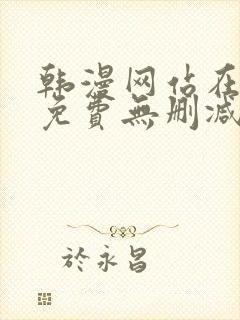 韩漫网站在
免費無删减
於永昌